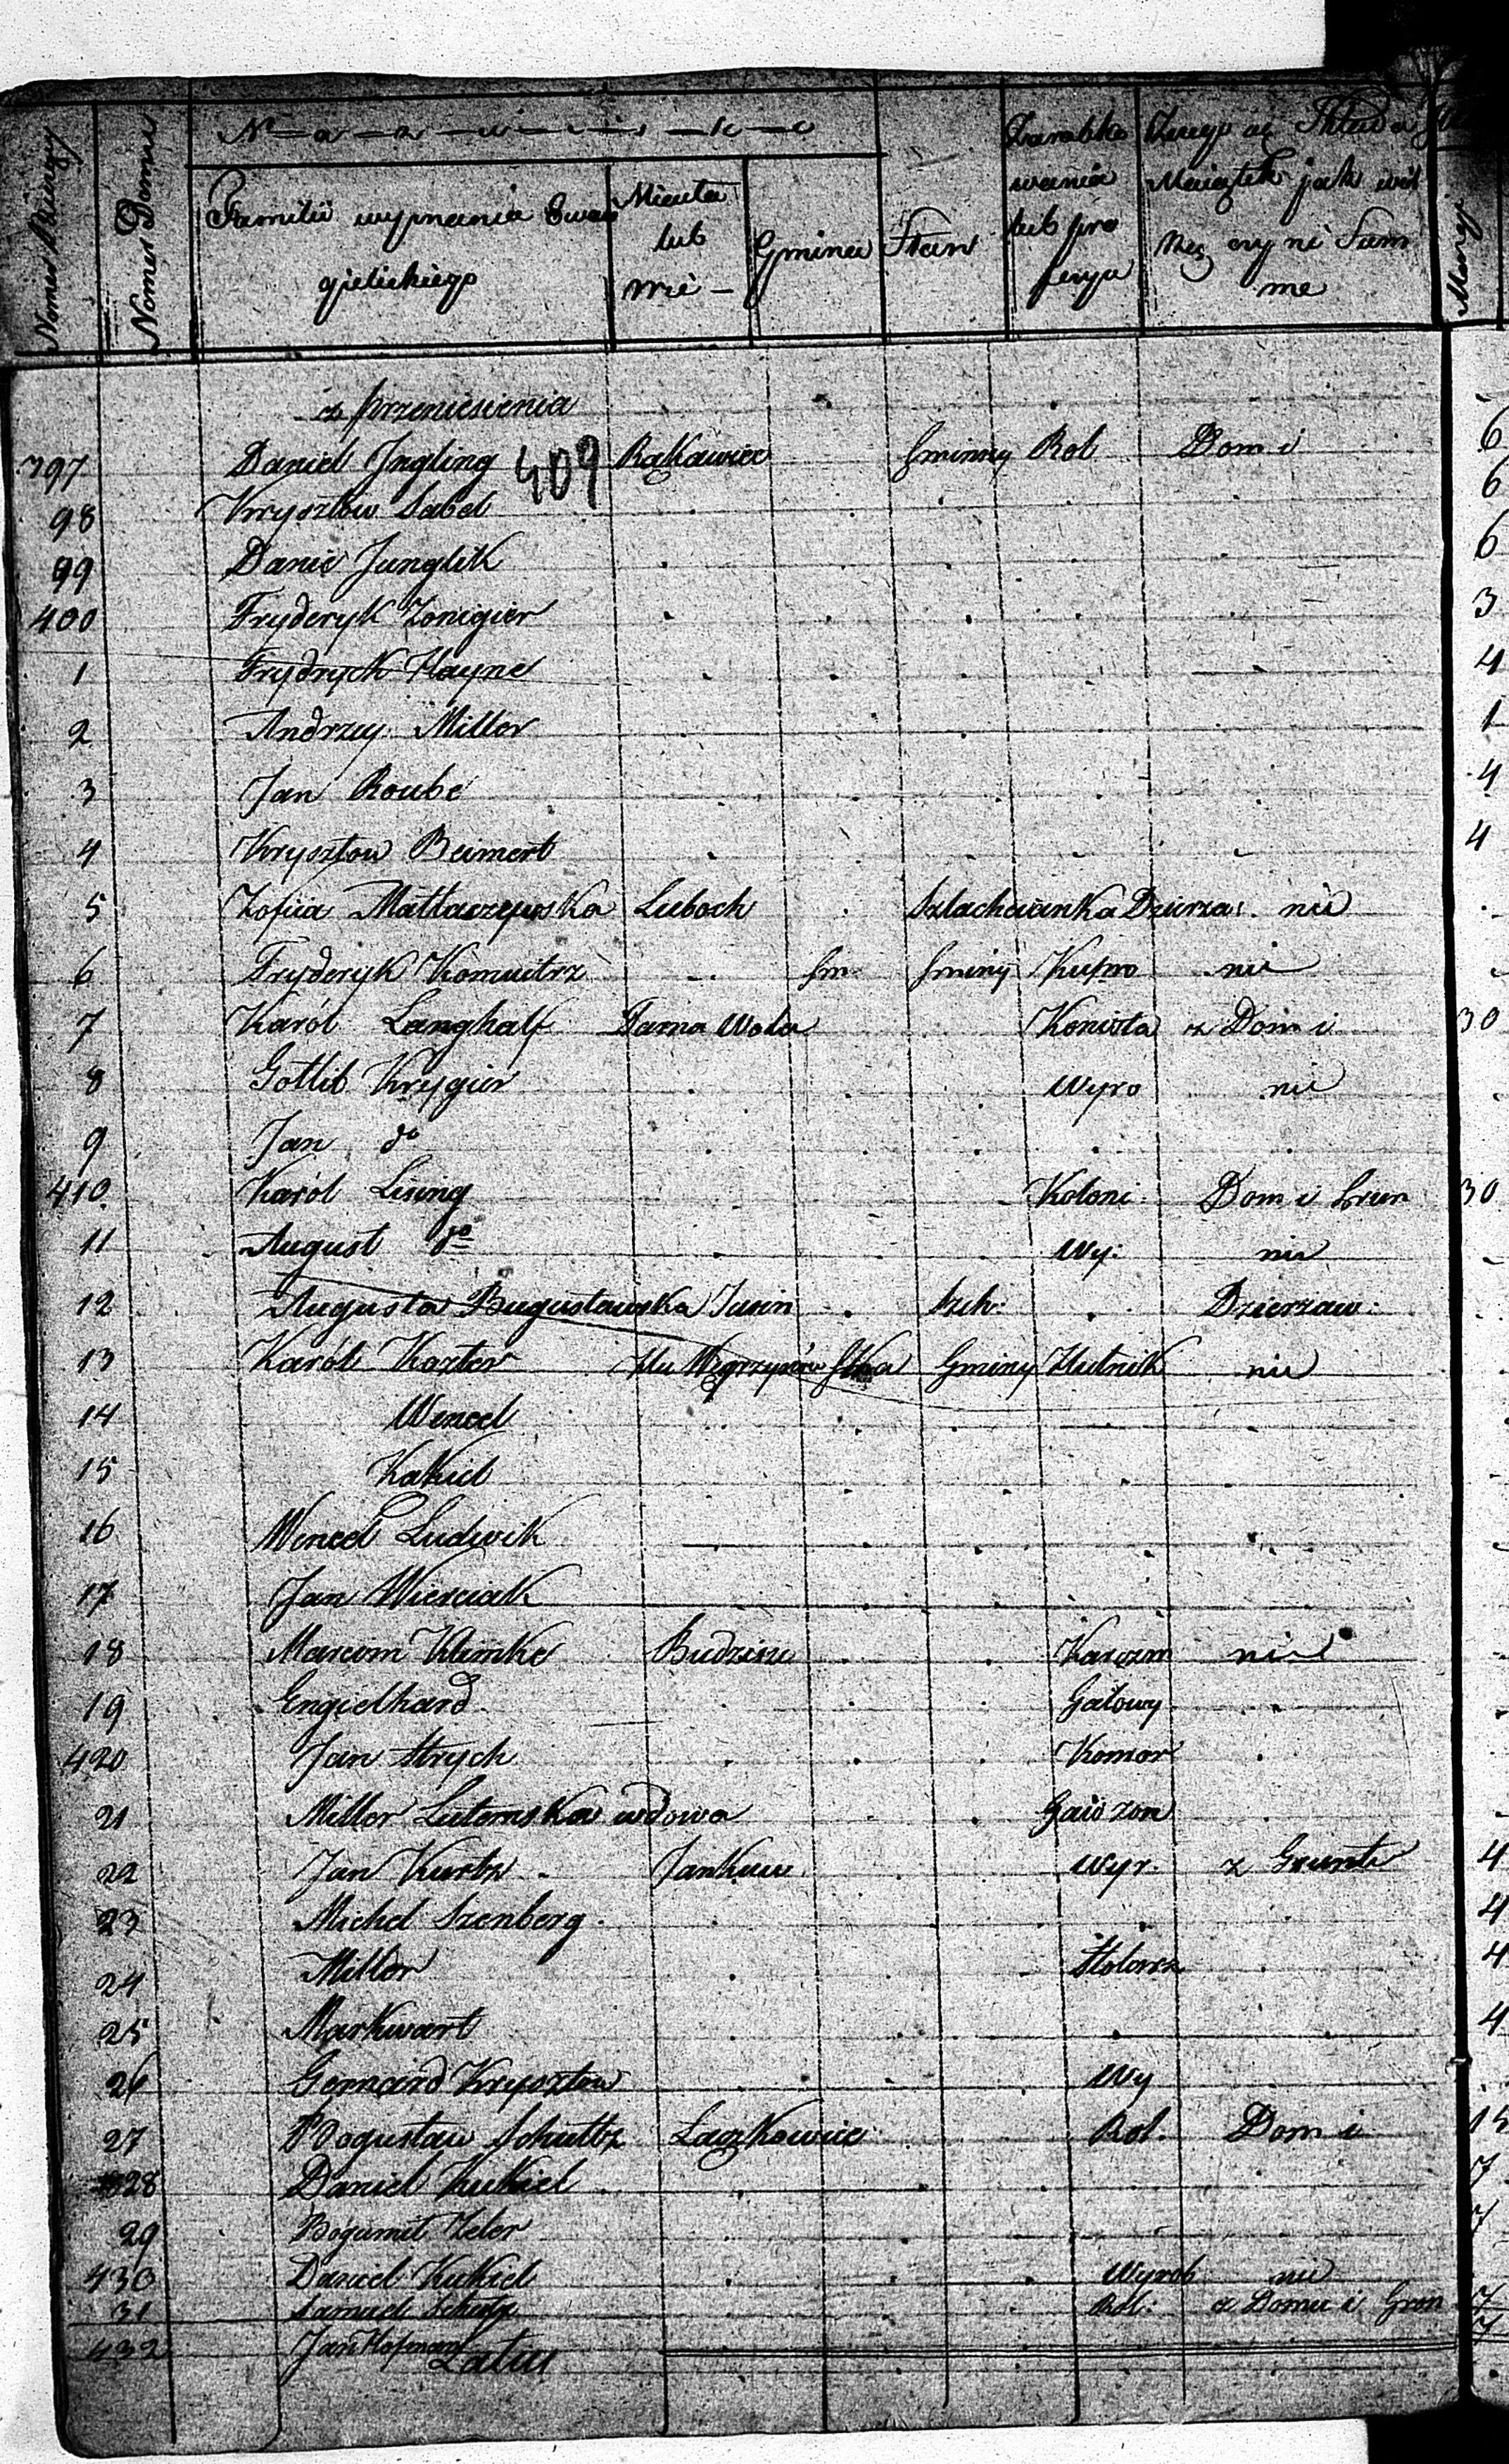 Nomer Bierzący
Nomer Domu
N-a-z-w-i-s-k-o
Familii wyznania Ewan
gielickiego
Miasta
lub
wsi -
Gmina
Stan
Zarobko
wania
lub pro
fesya
Maiątek jak wiel
me
Margi
z przeniesienia
397 Daniel Jngling 409 Rąkawiec Gminny Rol Dom i 6
98 Krysztow Sabel 6
99 Danie Junglik 6
400 Fryderyk Zonigier 3
1 Frydryck Hayne 4
2 Andrzey Miller 1
3 Jan Roube 4
4 Krysztow Beimert 4
5 Zofiia Mattaszewska Luboch Szlachcianka Dzierza: nie
6 Fryderyk Komnitrz Gm Gminy Kupro nie
7 Karól Langhalf Tarna Wola Konista z Dom i 30
8 Gotlib Krygier Wyro nie
9 Jan do
410 Karól Lising Koloni Dom i Grun 30
11 August do Wy: nie
12 Augusta Bugusławska Jusin Szch: Dzierzaw:
13 Karól Kozter Hu Węgrzynów Gminy Hutnik nie
14 Wencel
15 Kakiel
16 Wencel Ludwik
17 Jan Wierciak
18 Marcom Klimke Budzisze Karczm nie
19 Engielhard Gaiowy
420 Jan Strych Komor
21 Miller Lutomska wdowa Gaio zon
22 Jan Kurtz Jankuw Wyr. z Grunta 4
23 Michel Szenberg 4
24 Miller Stolarz 4
25 Markwart 4
26 Gernard Krysztow Wy
27 Bogusław Schultz Laszkowice Rol. Dom i 15
428 Daniel Kukiel 7
29 Bogumił Zeler 7
430 Daniel Kukiel Wyrob nie
31 Samuel Schulz Rol: z Domu i Gron 7
432 Jan Hofman 7
Latus